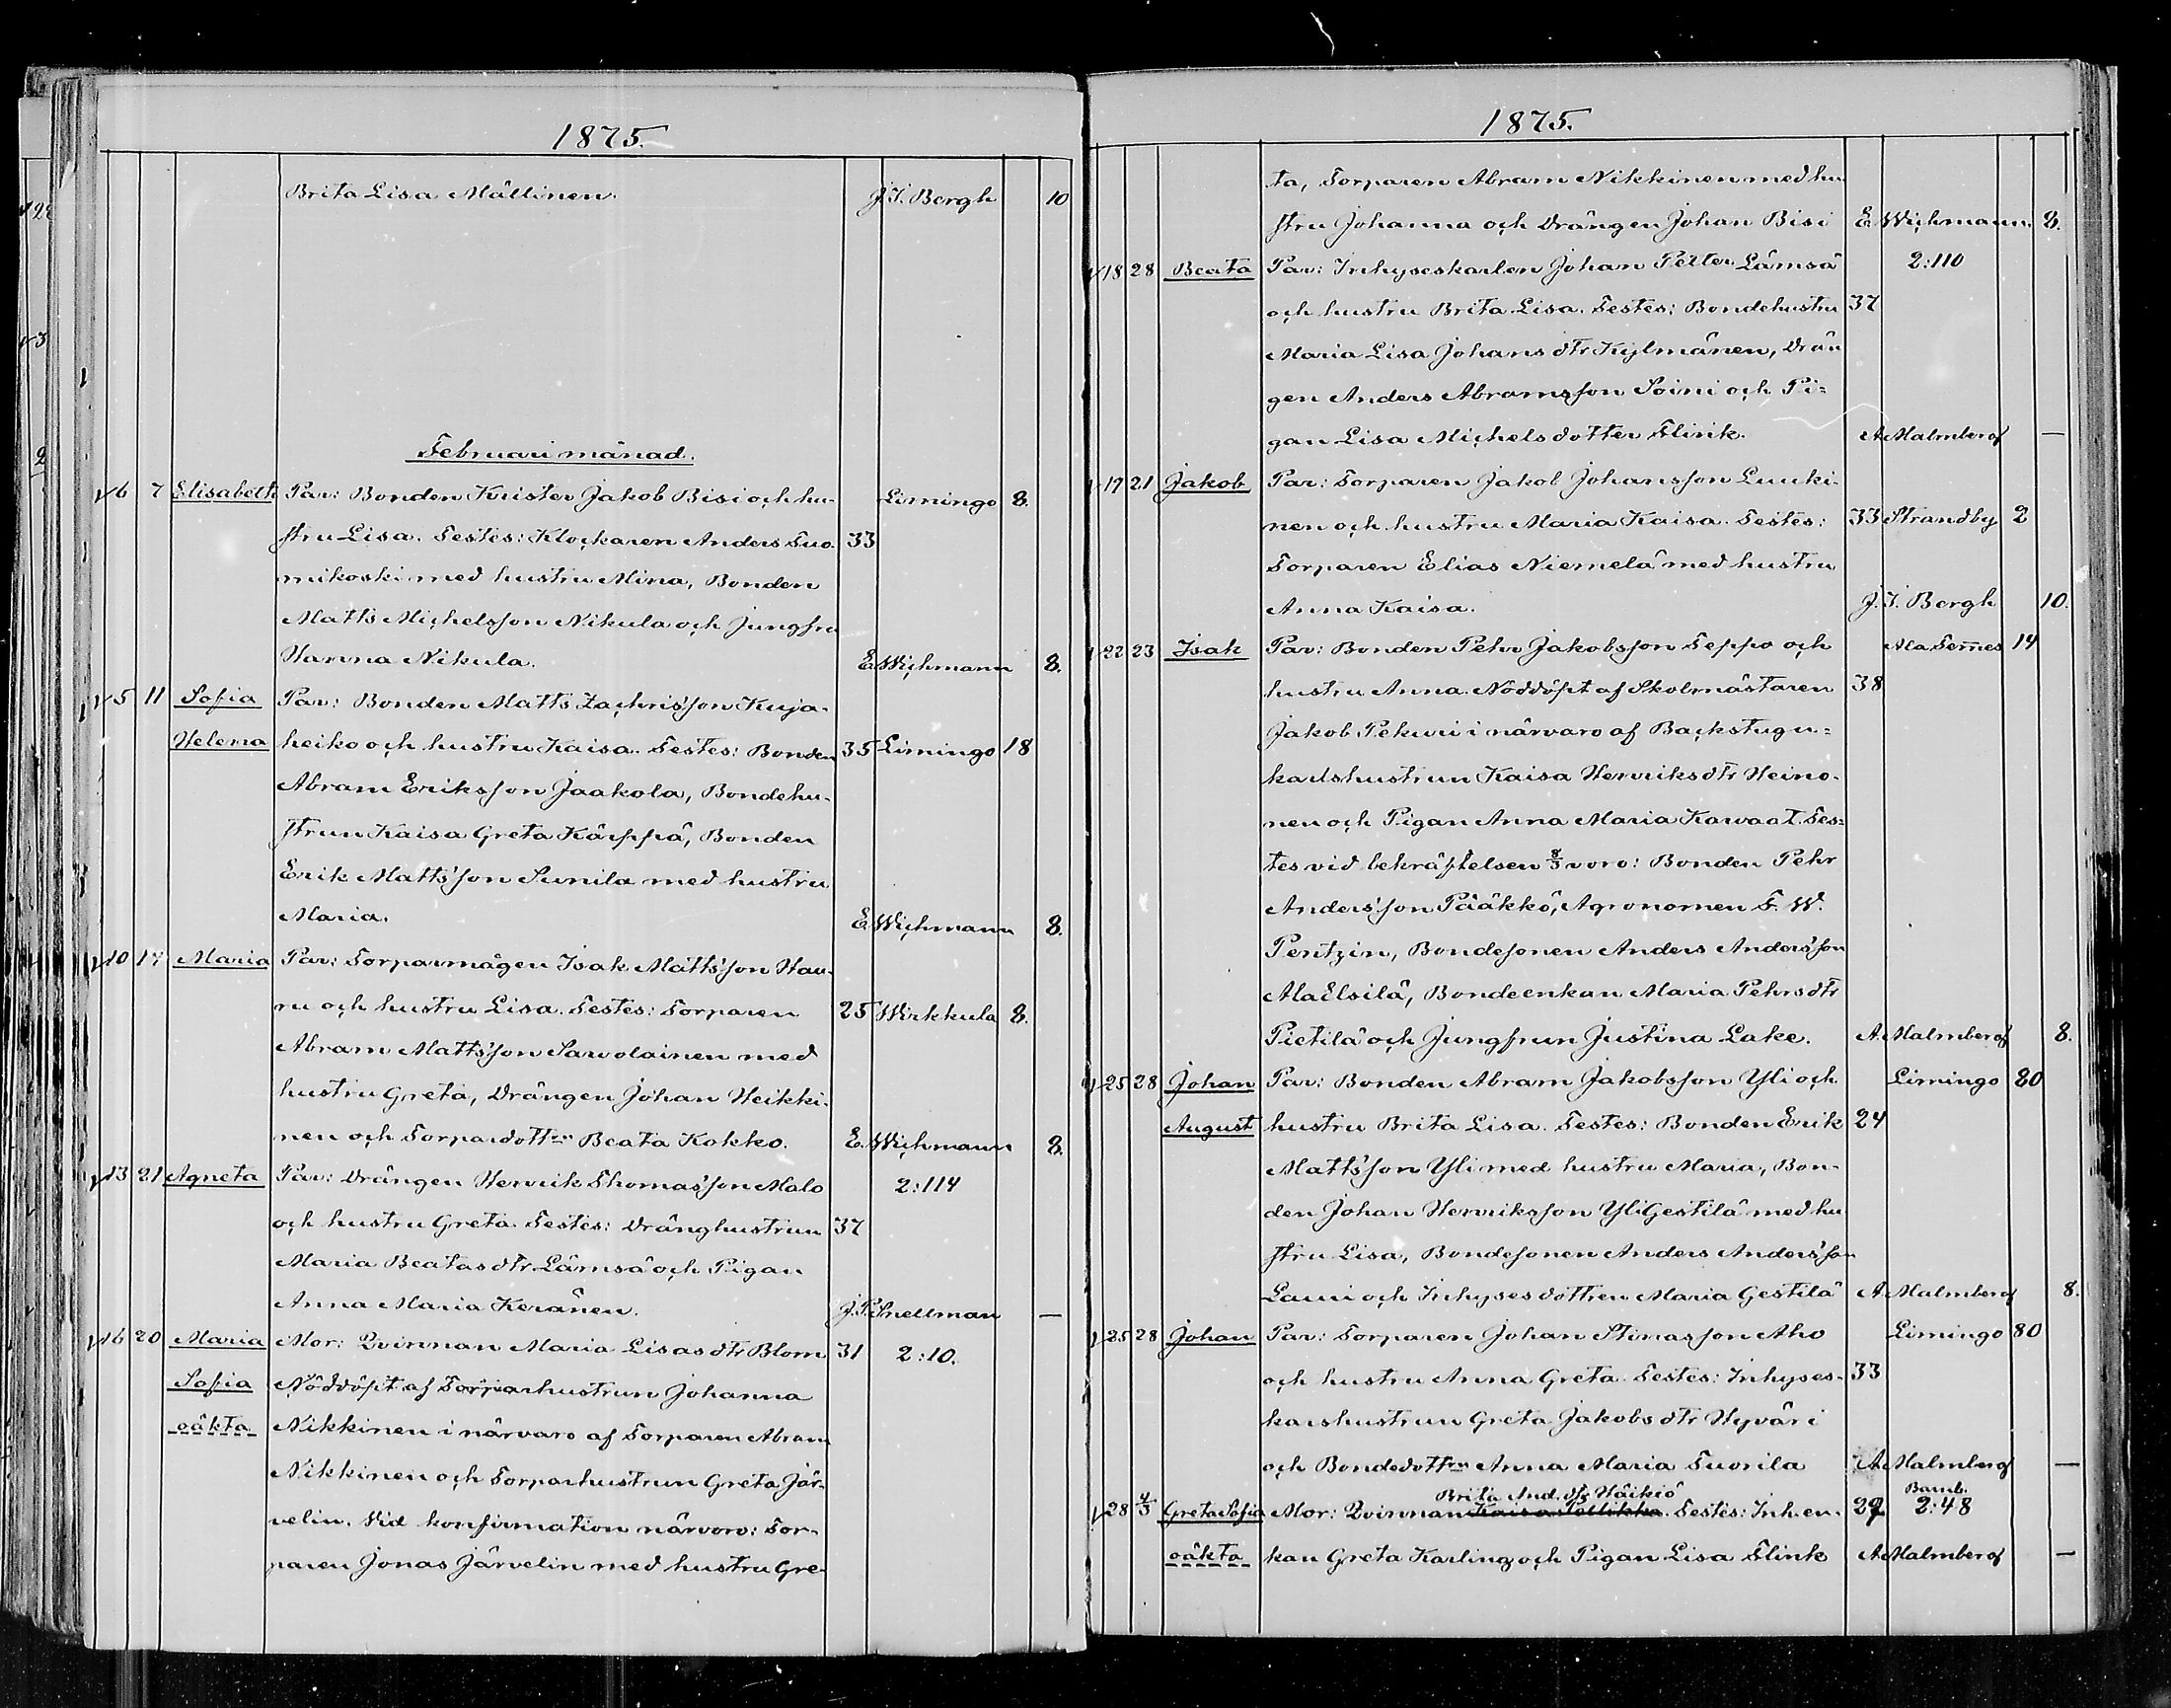 1875.
Brita Lisa Mällinen. J. I. Bergh 10
Februari månad.
6 7 Elisabeth Par: Bonden Krister Jakob Bisi och hu- Limingo 8.
stru Lisa. Testes: Klockaren Anders Tuo- 33
mikoski med hustru Mina, Bonden
Matts Michelsson Nikula och Jungfru
Hanna Nikula. E. Wichmann 8.
5 11 Sofia Par: Bonden Matts Zachrisson Kuja-
Helena heiko och hustru Kaisa. Testes: Bonden 35 Limingo 18
Abram Eriksson Jaakola, Bondehu-
strun Kaisa Greta Kärppä, Bonden
Erik Mattsson Sunila med hustru
Maria. E. Wichmann 8.
10 14 Maria Par: Torparmågen Isak Mattsson Hau-
ru och hustru Lisa. Testes: Torparen 25 Wirkkula 8.
Abram Mattsson Sarvolainen med
hustru Greta, Drängen Johan Heikki-
nen och Torpardottern Beata Kokko. E. Wichmann 8.
13 21 Agneta Par: Drängen Henrik Thomasson Malo 2:114
och hustru Greta. Testes: Dränghustrun 37
Maria Beatas dtr Lämsä och Pigan
Anna Maria Keränen. J. F. Snellman —
16 20 Maria Mor: Qvinnan Maria Lisas dtr Blom 31 2:10.
Sofia Nöddöpt af Torparhustrun Johanna
oäkta Nikkinen i närvaro af Torparen Abram
Nikkinen och Torparhustrun Greta Jär-
velin. Vid konfirmation närvoro: Tor-
paren Jonas Järvelin med hustru Gre-
1875.
ta, Torparen Abram Nikkinen med hu
stru Johanna och Drängen Johan Bisi E. Wichmann. 8.
18 28 Beata Par: Inhyseskarlen Johan Petter Lämsä 2:110
och hustru Brita Lisa. Testes: Bondehustru 37
Maria Lisa Johans dtr Kylmänen, Drän
gen Anders Abramsson Soini och Pi-
gan Lisa Michelsdotter Flink. A. Malmberg —
19 21 Jakob Par: Torparen Jakob Johansson Luuki-
nen och hustru Maria Kaisa. Testes: 33 Strandby 2
Torparen Elias Niemelä med hustru
Anna Kaisa. J. I. Bergh 10.
22 23 Isak Par: Bonden Pehr Jakobsson Seppo och Ala Temmes 14
hustru Anna. Nöddöpt af Skolmästaren 38
Jakob Pekuri i närvaro af Backstugu-
karlshustrun Kaisa Henriks dtr Heino-
nen och Pigan Anna Maria Karvaat. Tes-
tes vid bekräftelsen 8/3 voro: Bonden Pehr
Andersson Pääkkö, Agronomen F. W.
Pentzin, Bondesonen Anders Andersson
Ala Elsilä, Bondeenkan Maria Pehrs dtr
Pietilä och Jungfrun Justina Lake. A. Malmberg 8.
25 28 Johan Par: Bonden Abram Jakobsson Yli och Limingo 80
August hustru Brita Lisa. Testes: Bonden Erik 24
Mattsson Yli med hustru Maria, Bon-
den Johan Henriksson Yli Gestilä med hu
stru Lisa, Bondesonen Anders Andersson
Lauri och Inhysesdottren Maria Gestilä A. Malmberg 8.
25 28 Johan Par: Torparen Johan Stinasson Aho Limingo 80
och hustru Anna Greta. Testes: Inhyses- 33
karshustrun Greta Jakobs dtr Hyväri
och Bondedottern Anna Maria Tuorila A. Malmberg —
Brita And. dtr Häikiö Bamb.
28 4/3 Greta Sofia Mor: Qvinnan Kaisa Pollikka. Testes: Inh.en- 2:48
oäkta kan Greta Karling och Pigan Lisa Flink A. Malmberg —